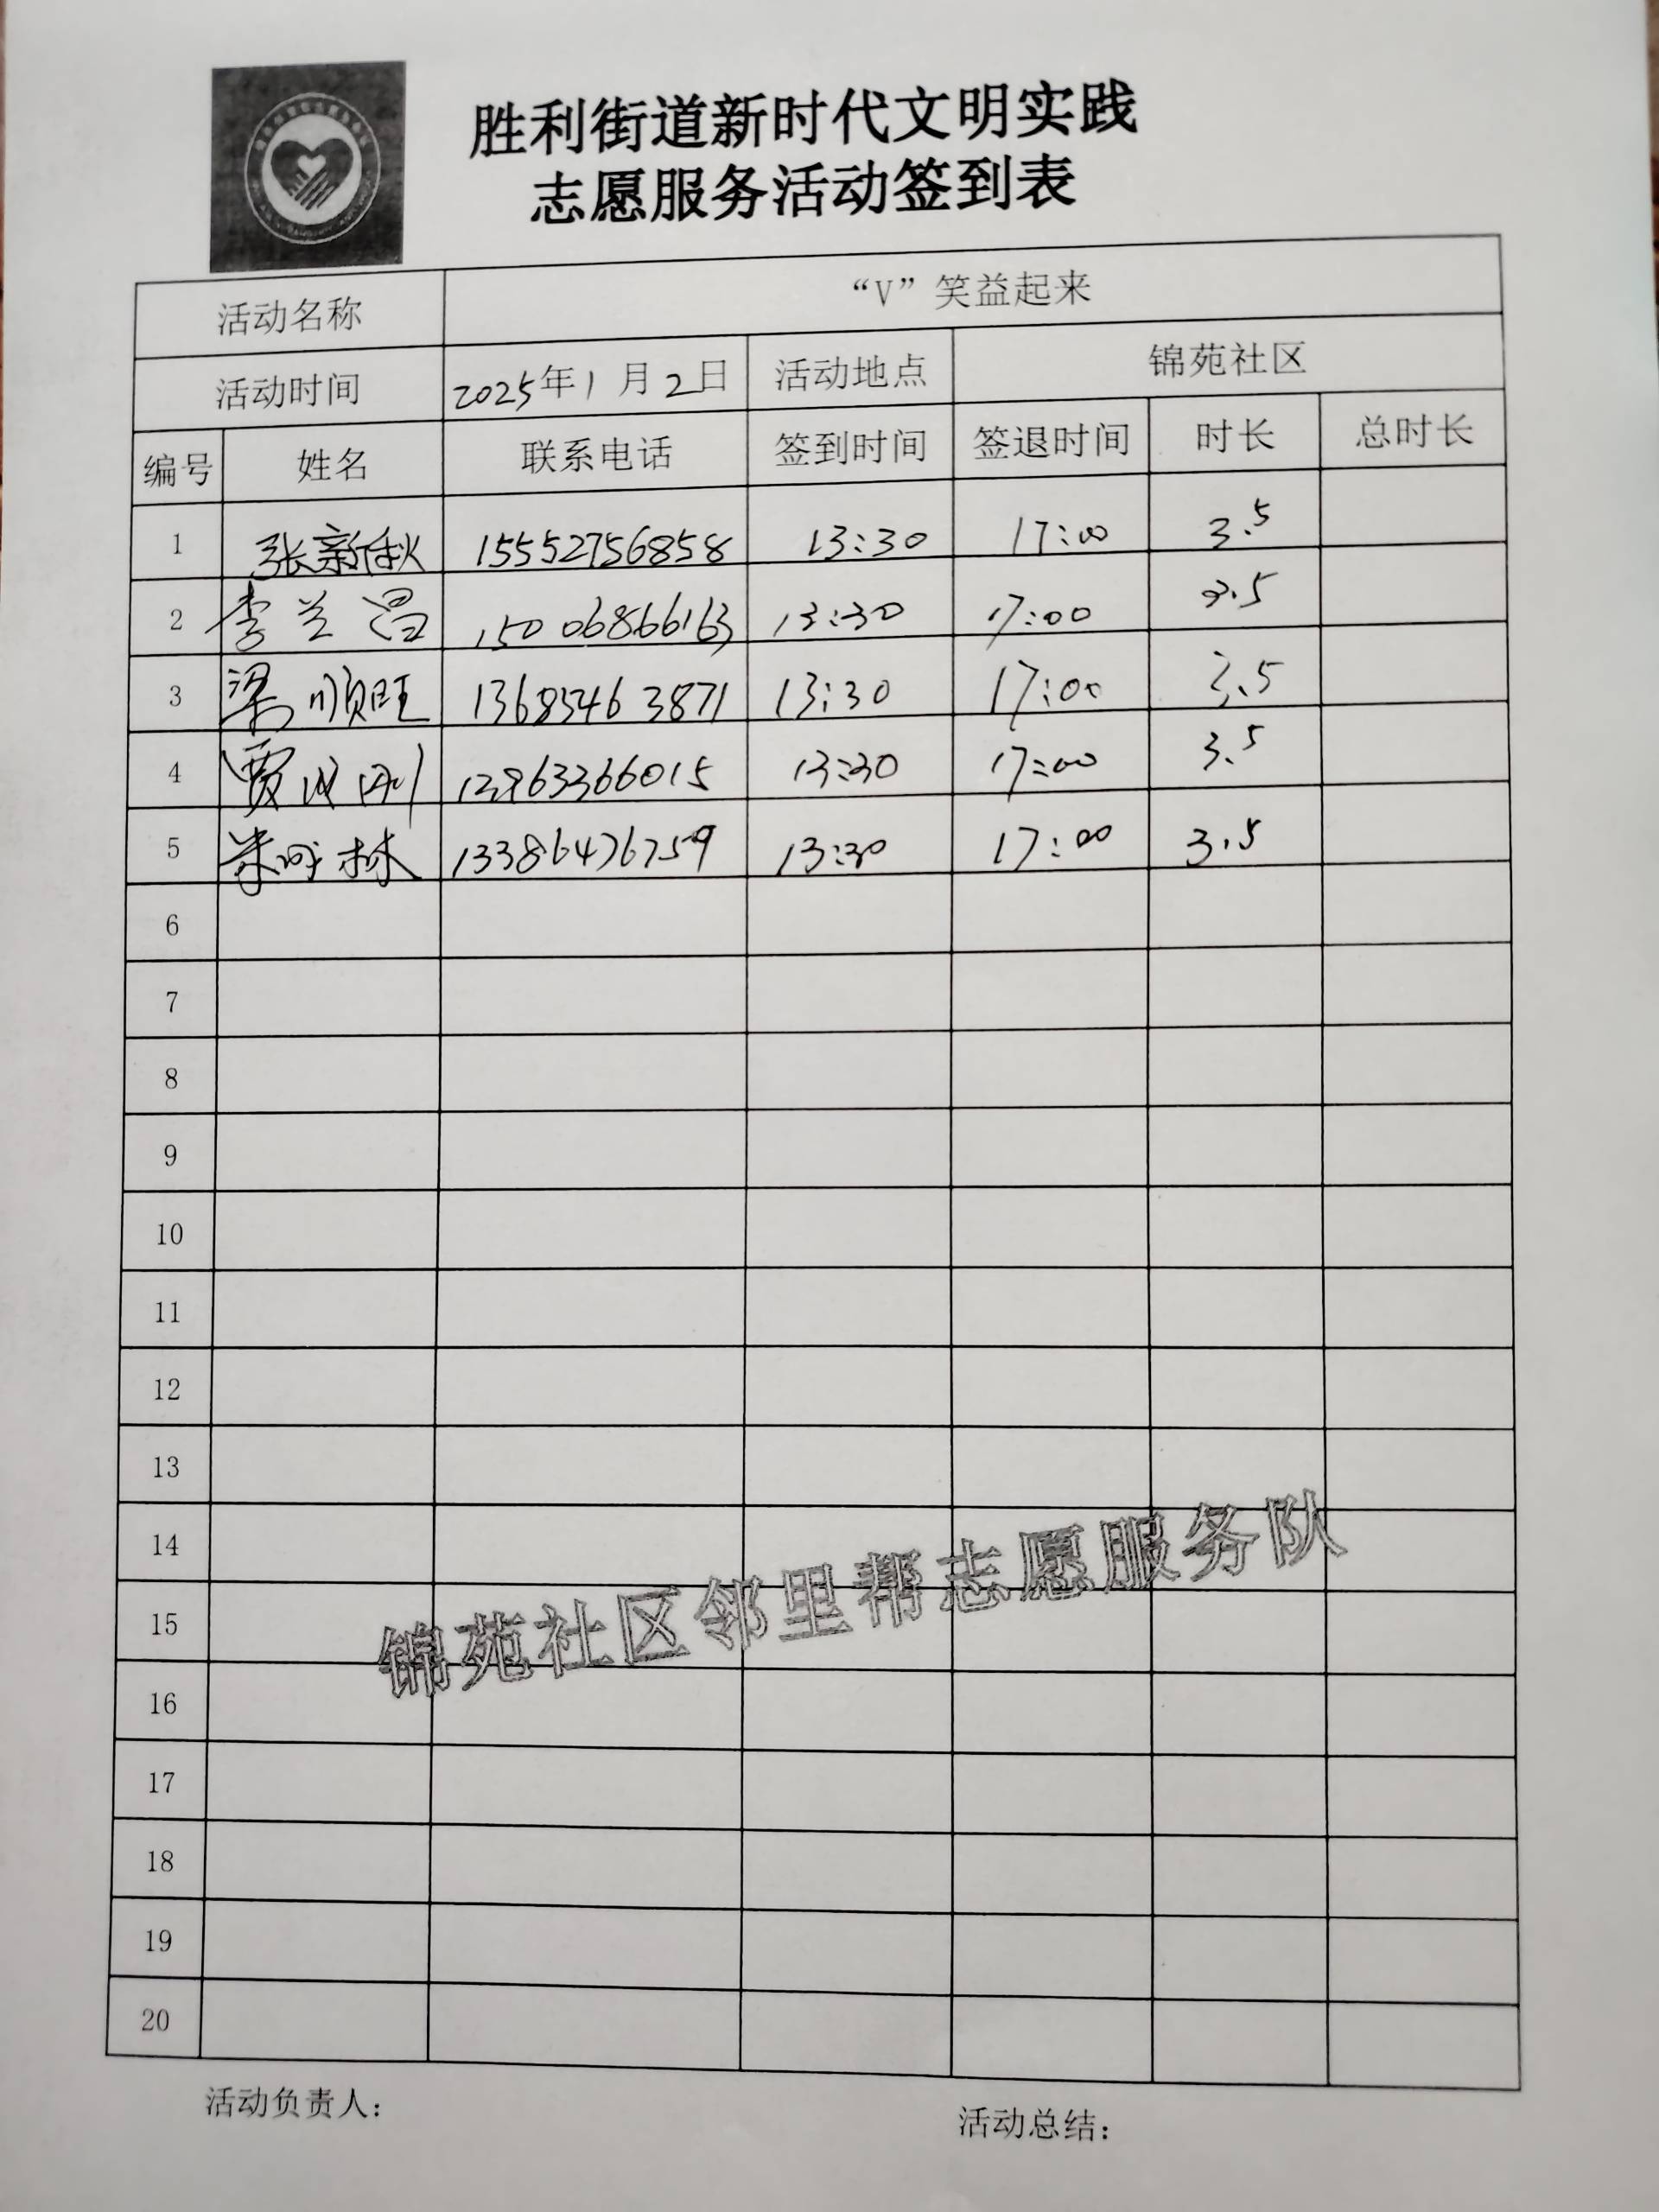 胜利街道新时代文明实践
志愿服务活动签到表
活动名称 “V”笑益起来
活动时间 2025年1月2日 活动地点 锦苑社区
编号 姓名 联系电话 签到时间 签退时间 时长 总时长
1 张新秋 15552756858 13:30 17:00 3.5
2 李兰昌 15006866163 13:30 17:00 3.5
3 梁顺旺 13685463871 13:30 17:00 3.5
4 贾 刚 13963366015 13:30 17:00 3.5
5 林 13386476759 13:30 17:00 3.5
6
7
8
9
10
11
12
13
14
15
16
17
18
19
20
锦苑社区邻里帮志愿服务队
活动负责人：
活动总结：